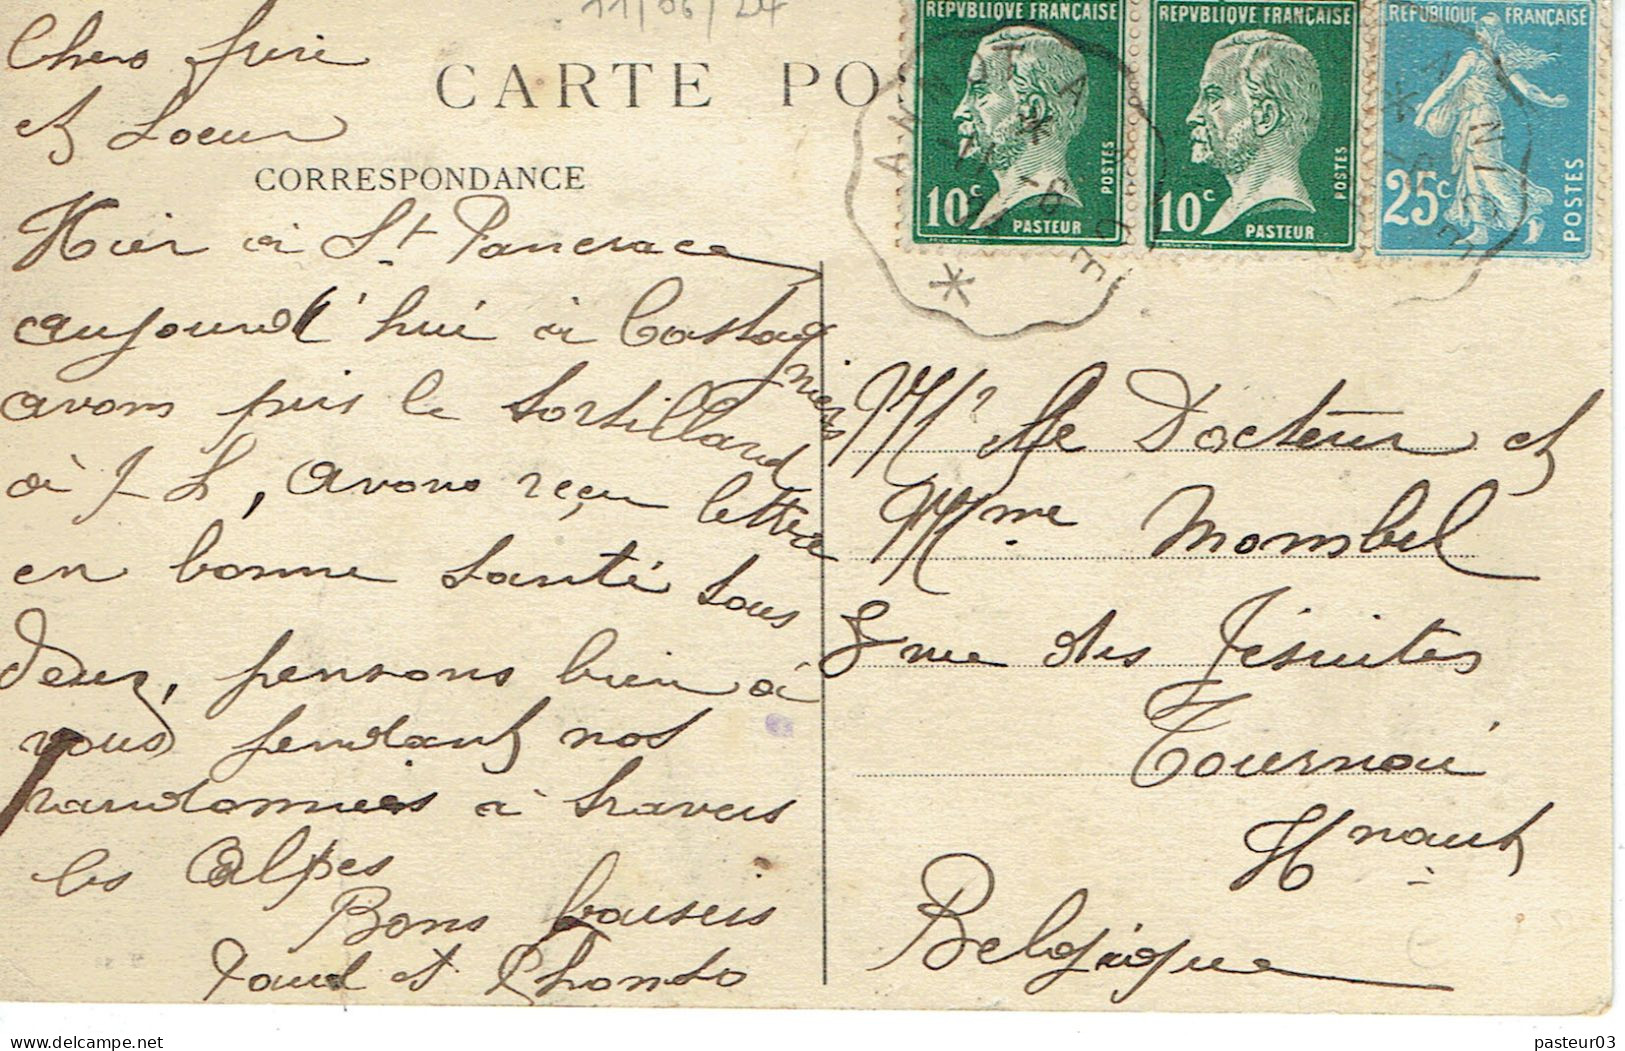 11/06/24
REPVBLIQUE FRANÇAISE
REPVBLIQUE FRANÇAISE
REPUBLIQUE FRANÇAISE
CARTE PO
CORRESPONDANCE
10c POSTES PASTEUR
10c POSTES PASTEUR
25c POSTES
ANNOT A NICE
Chers frère
et Soeur
Hier à St. Pancrace
aujourd'hui à Castagniers
avons pris le tortillard
à J L, avons reçu lettre
en bonne santé tous
deux, pensons bien à
vous pendant nos
randonnées à travers
les Alpes
Bons baisers
et Phonso
Mr le Docteur et
Mme Mombel
8 rue des Jésuites
Tournai
Hnaut
Belgique
pasteur03